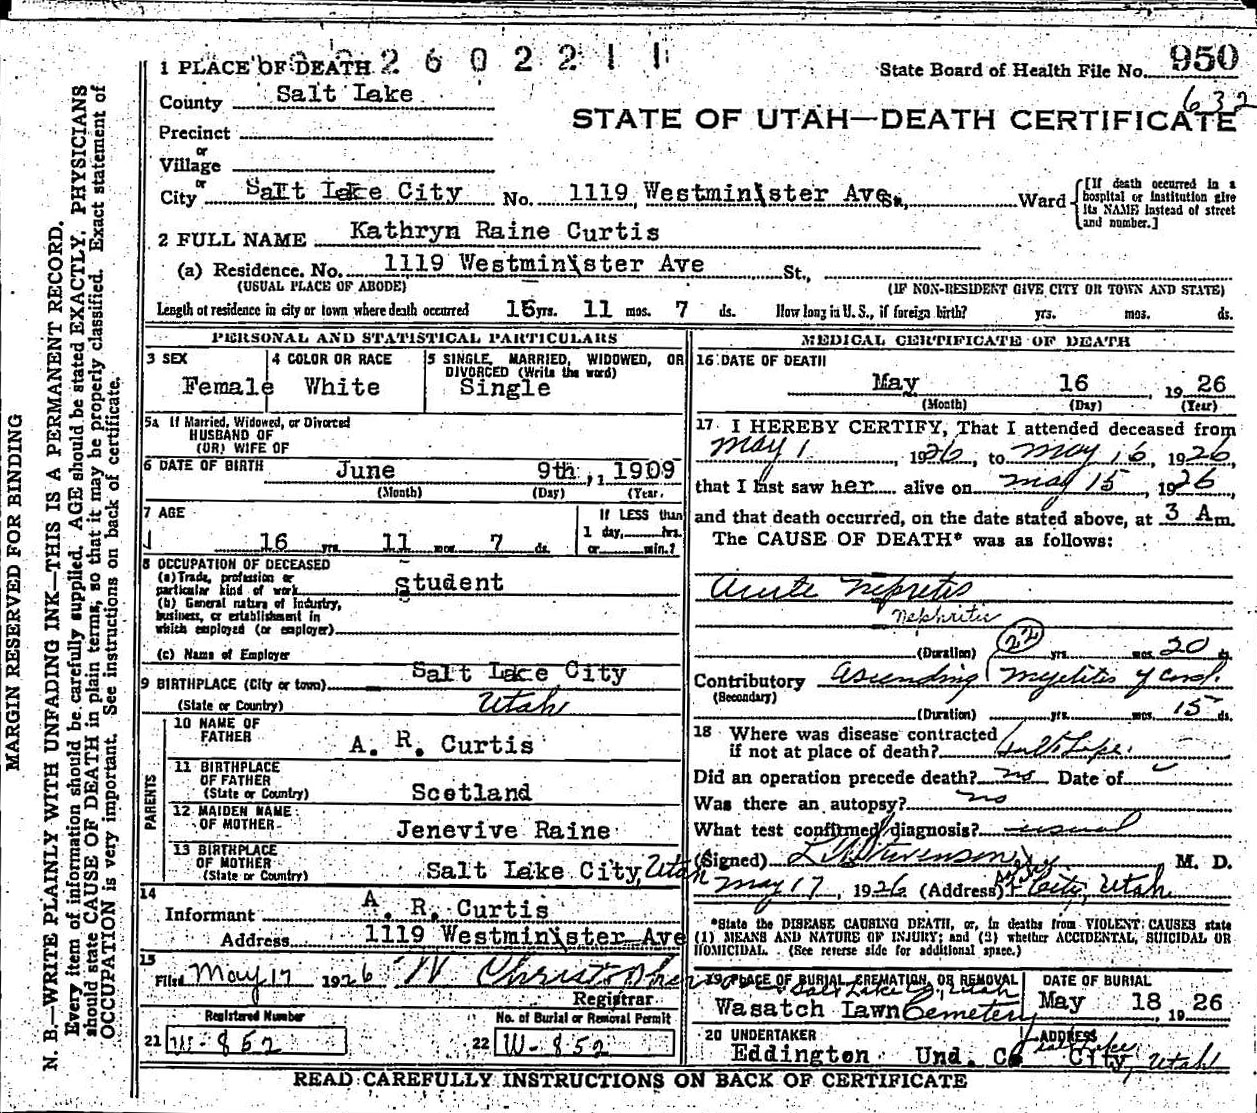 2602211
1 PLACE OF DEATH
State Board of Health File No. 950
632
County Salt Lake
STATE OF UTAH—DEATH CERTIFICATE
Precinct
or
Village
or
City Salt Lake City No. 1119 Westminister Ave St., Ward
[If death occurred in a hospital or institution give its NAME instead of street and number.]
2 FULL NAME Kathryn Raine Curtis
(a) Residence. No. 1119 Westminister Ave St.,
(USUAL PLACE OF ABODE) (IF NON-RESIDENT GIVE CITY OR TOWN AND STATE)
Length of residence in city or town where death occurred 15 yrs. 11 mos. 7 ds. How long in U. S., if foreign birth? yrs. mos. ds.
PERSONAL AND STATISTICAL PARTICULARS
3 SEX
Female
4 COLOR OR RACE
White
5 SINGLE, MARRIED, WIDOWED, OR
DIVORCED (Write the word)
Single
5a If Married, Widowed, or Divorced
HUSBAND OF
(OR) WIFE OF
6 DATE OF BIRTH June 9th, 1909
(Month) (Day) (Year.
7 AGE
If LESS than
1 day, hrs.
or min.?
16 yrs. 11 mos. 7 ds.
8 OCCUPATION OF DECEASED
(a) Trade, profession or
particular kind of work Student
(b) General nature of industry,
business, or establishment in
which employed (or employer)
(c) Name of Employer
9 BIRTHPLACE (City or town) Salt Lake City
(State or Country) Utah
PARENTS
10 NAME OF
FATHER A. R. Curtis
11 BIRTHPLACE
OF FATHER
(State or Country) Scotland
12 MAIDEN NAME
OF MOTHER Jenevive Raine
13 BIRTHPLACE
OF MOTHER
(State or Country) Salt Lake City, Utah
14
Informant A. R. Curtis
Address 1119 Westminister Ave
15
Filed May 17 1926 W Christopherson
Registrar
Registered Number
21 W-852
No. of Burial or Removal Permit
22 W-852
MEDICAL CERTIFICATE OF DEATH
16 DATE OF DEATH
May 16, 1926
(Month) (Day) (Year)
17 I HEREBY CERTIFY, That I attended deceased from
May 1, 1926, to May 16, 1926,
that I last saw her alive on May 15, 1926,
and that death occurred, on the date stated above, at 3 A m.
The CAUSE OF DEATH* was as follows:
Acute Nepretis
Nephritis
(Duration) yrs. mos. 20 ds.
Contributory Ascending Myelitis of cord.
(Secondary)
(Duration) yrs. mos. 15 ds.
18 Where was disease contracted
if not at place of death? Salt Lake.
Did an operation precede death? no Date of
Was there an autopsy? no
What test confirmed diagnosis? usual
(Signed) Stevenson M. D.
May 17, 1926 (Address) City, Utah
*State the DISEASE CAUSING DEATH, or, in deaths from VIOLENT CAUSES state
(1) MEANS AND NATURE OF INJURY; and (2) whether ACCIDENTAL, SUICIDAL OR
HOMICIDAL. (See reverse side for additional space.)
19 PLACE OF BURIAL, CREMATION, OR REMOVAL
Salt Lake C, Utah
Wasatch Lawn Cemetery
DATE OF BURIAL
May 18, 1926
20 UNDERTAKER
Eddington Und. Co
ADDRESS
Salt Lake
City, Utah
READ CAREFULLY INSTRUCTIONS ON BACK OF CERTIFICATE
MARGIN RESERVED FOR BINDING
N. B.—WRITE PLAINLY WITH UNFADING INK—THIS IS A PERMANENT RECORD.
Every item of information should be carefully supplied. AGE should be stated EXACTLY. PHYSICIANS
should state CAUSE OF DEATH in plain terms, so that it may be properly classified. Exact statement of
OCCUPATION is very important. See instructions on back of certificate.